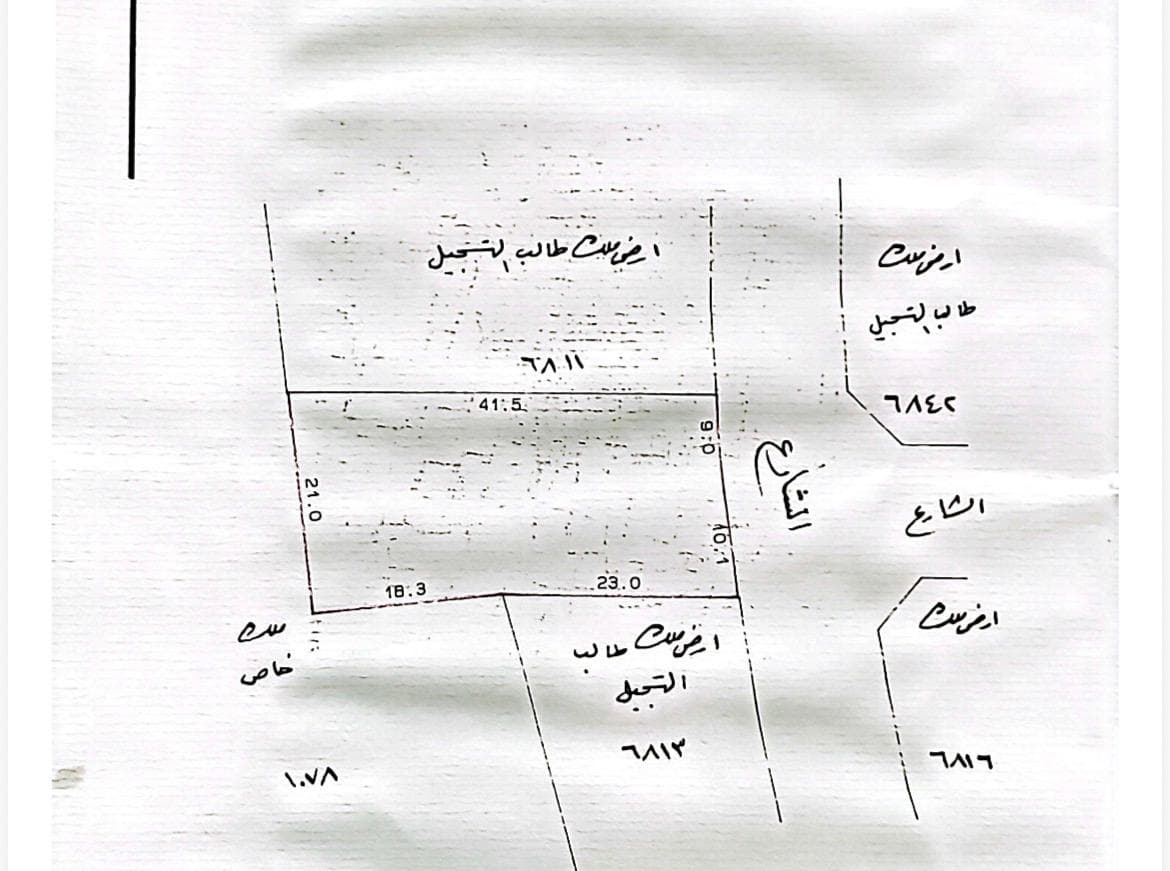 ارض ملك طالب التسجيل
ارض ملك
طالب التسجيل
٦٨١١
٦٨٤٢
41.5
9.0
21.0
10.1
الشارع
الشارع
18.3
23.0
ملك
خاص
ارض ملك طالب
التسجيل
ارض ملك
٦٨١٣
٦٨١٦
١٠٧٨